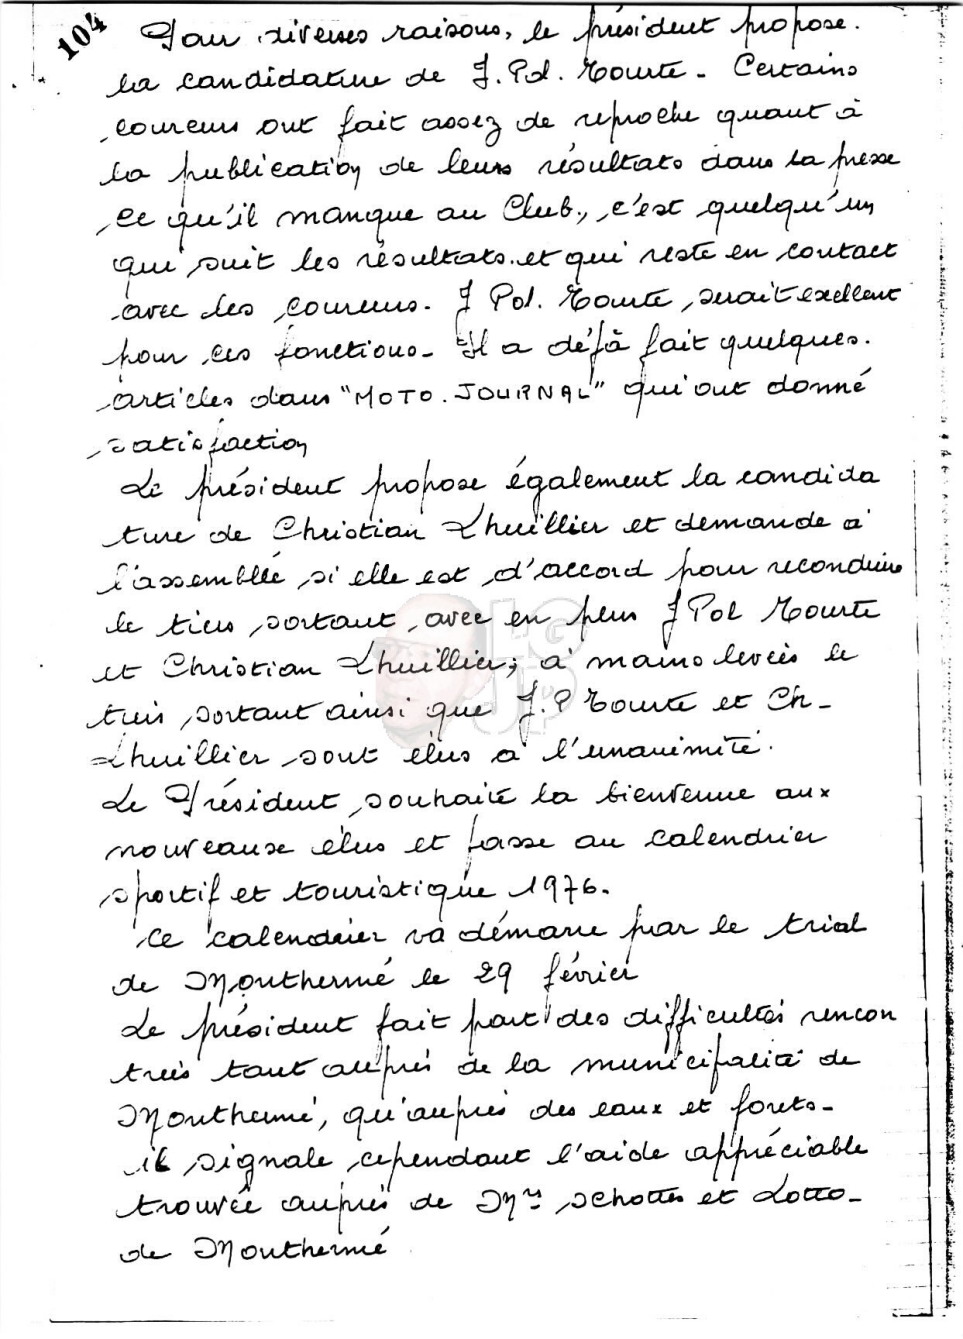 104
Pour diverses raisons, le président propose.
la candidature de J. Pol. Tourte - Certains
coureurs ont fait assez de reproche quant à
la publication de leurs résultats dans la presse
ce qu'il manque au Club, c'est quelqu'un
qui suit les résultats et qui reste en contact
avec les coureurs. J Pol. Tourte, serait exellent
pour ces fonctions - Il a déjà fait quelques.
articles dans "MOTO. JOURNAL" qui ont donné
satisfaction
Le président propose également la candida
ture de Christian Lhuillier et demande à
l'assemblée si elle est d'accord pour reconduire
le tiers sortant, avec en plus J Pol Tourte
et Christian Lhuillier; à mains levées le
tiers sortant ainsi que J.P Tourte et Ch-
Lhuillier sont élus à l'unanimité.
Le Président souhaite la bienvenue aux
nouveaux élus et passe au calendrier
sportif et touristique 1976.
Ce calendrier va démarre par le trial
de Monthermé le 29 février
Le président fait part des difficultés rencon
trées tant auprès de la municipalité de
Monthermé, qu'auprès des eaux et forets-
il signale cependant l'aide appréciable
trouvée auprès de Mrs Schottes et Lotto-
de Monthermé
LG
JP